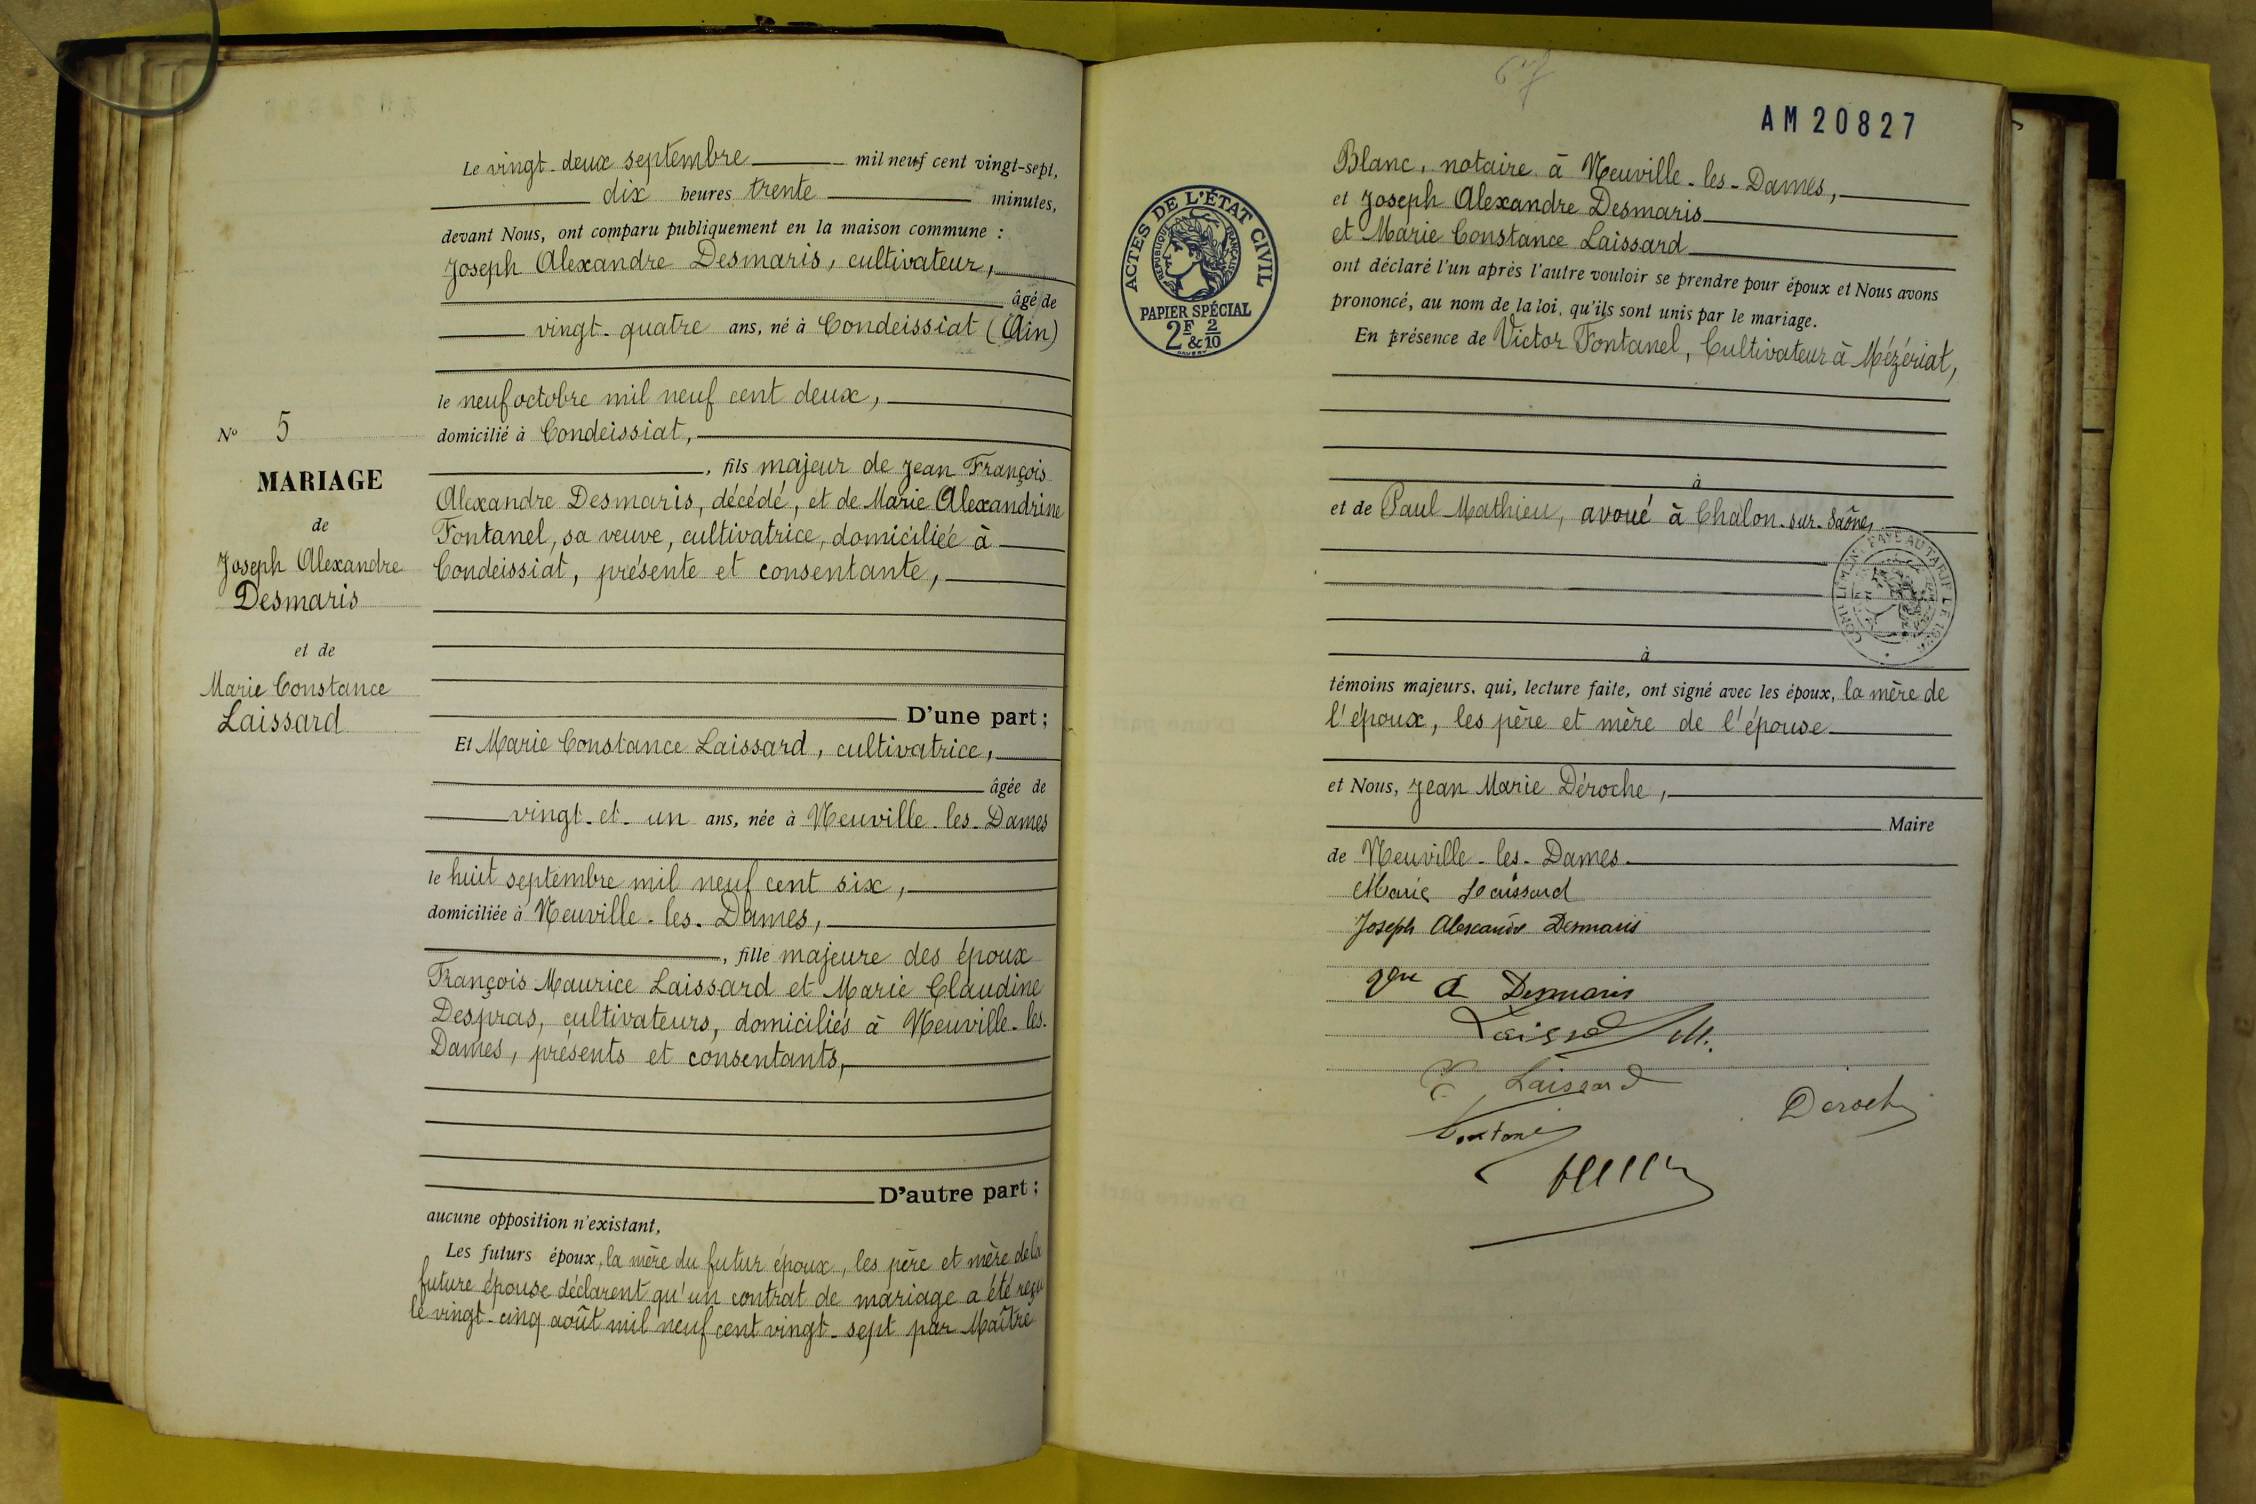 Le vingt-deux septembre mil neuf cent vingt-sept,
dix heures trente minutes,
devant Nous, ont comparu publiquement en la maison commune :
Joseph Alexandre Desmaris, cultivateur,
âgé de
vingt-quatre ans, né à Condeissiat (Ain)
le neuf octobre mil neuf cent deux,
domicilié à Condeissiat,
, fils majeur de Jean François
Alexandre Desmaris, décédé, et de Marie Alexandrine
Fontanel, sa veuve, cultivatrice, domiciliée à
Condeissiat, présente et consentante,
D'une part ;
Et Marie Constance Laissard, cultivatrice,
âgée de
vingt-et-un ans, née à Neuville-les-Dames
le huit septembre mil neuf cent six,
domiciliée à Neuville-les-Dames,
, fille majeure des époux
François Maurice Laissard et Marie Claudine
Despras, cultivateurs, domiciliés à Neuville-les-
Dames, présents et consentants,
D'autre part ;
aucune opposition n'existant,
Les futurs époux, la mère du futur époux, les père et mère de la
future épouse déclarent qu'un contrat de mariage a été reçu
le vingt-cinq août mil neuf cent vingt-sept par Maître
N° 5
MARIAGE
de
Joseph Alexandre
Desmaris
et de
Marie Constance
Laissard
AM 20827
Blanc, notaire à Neuville-les-Dames,
et Joseph Alexandre Desmaris
et Marie Constance Laissard
ont déclaré l'un après l'autre vouloir se prendre pour époux et Nous avons
prononcé, au nom de la loi, qu'ils sont unis par le mariage.
En présence de Victor Fontanel, Cultivateur à Mézériat,
à
et de Paul Mathieu, avoué à Chalon-sur-Saône,
à
témoins majeurs, qui, lecture faite, ont signé avec les époux, la mère de
l'époux, les père et mère de l'épouse
et Nous, Jean Marie Déroche,
Maire
de Neuville-les-Dames
Marie Laissard
Joseph Alexandre Desmaris
Vve A Desmaris
Laissard M.
C Laissard
Fontanel
Deroche
ACTES DE L'ÉTAT CIVIL
RÉPUBLIQUE FRANÇAISE
PAPIER SPÉCIAL
2F & 2/10